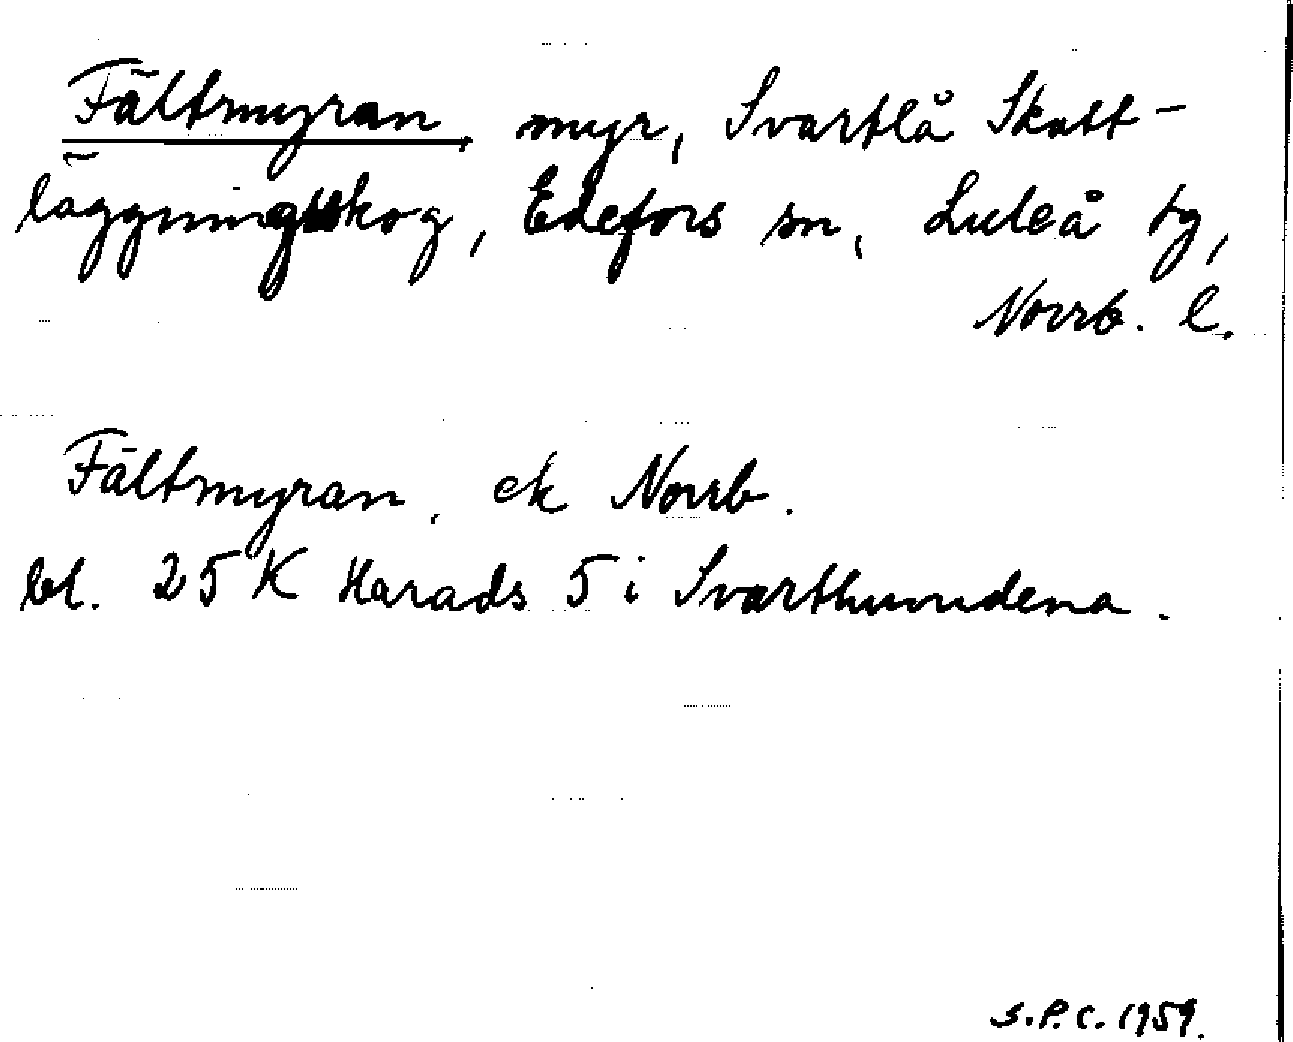 Fältmyran, myr, Svartlå Skatt-
läggningsskog, Edefors sn, Luleå tg,
Norrb. l.
Fältmyran, ek Norrb.
bl. 25 K Harads 5 i Svarthuvudena.
S.P.C. 1959.